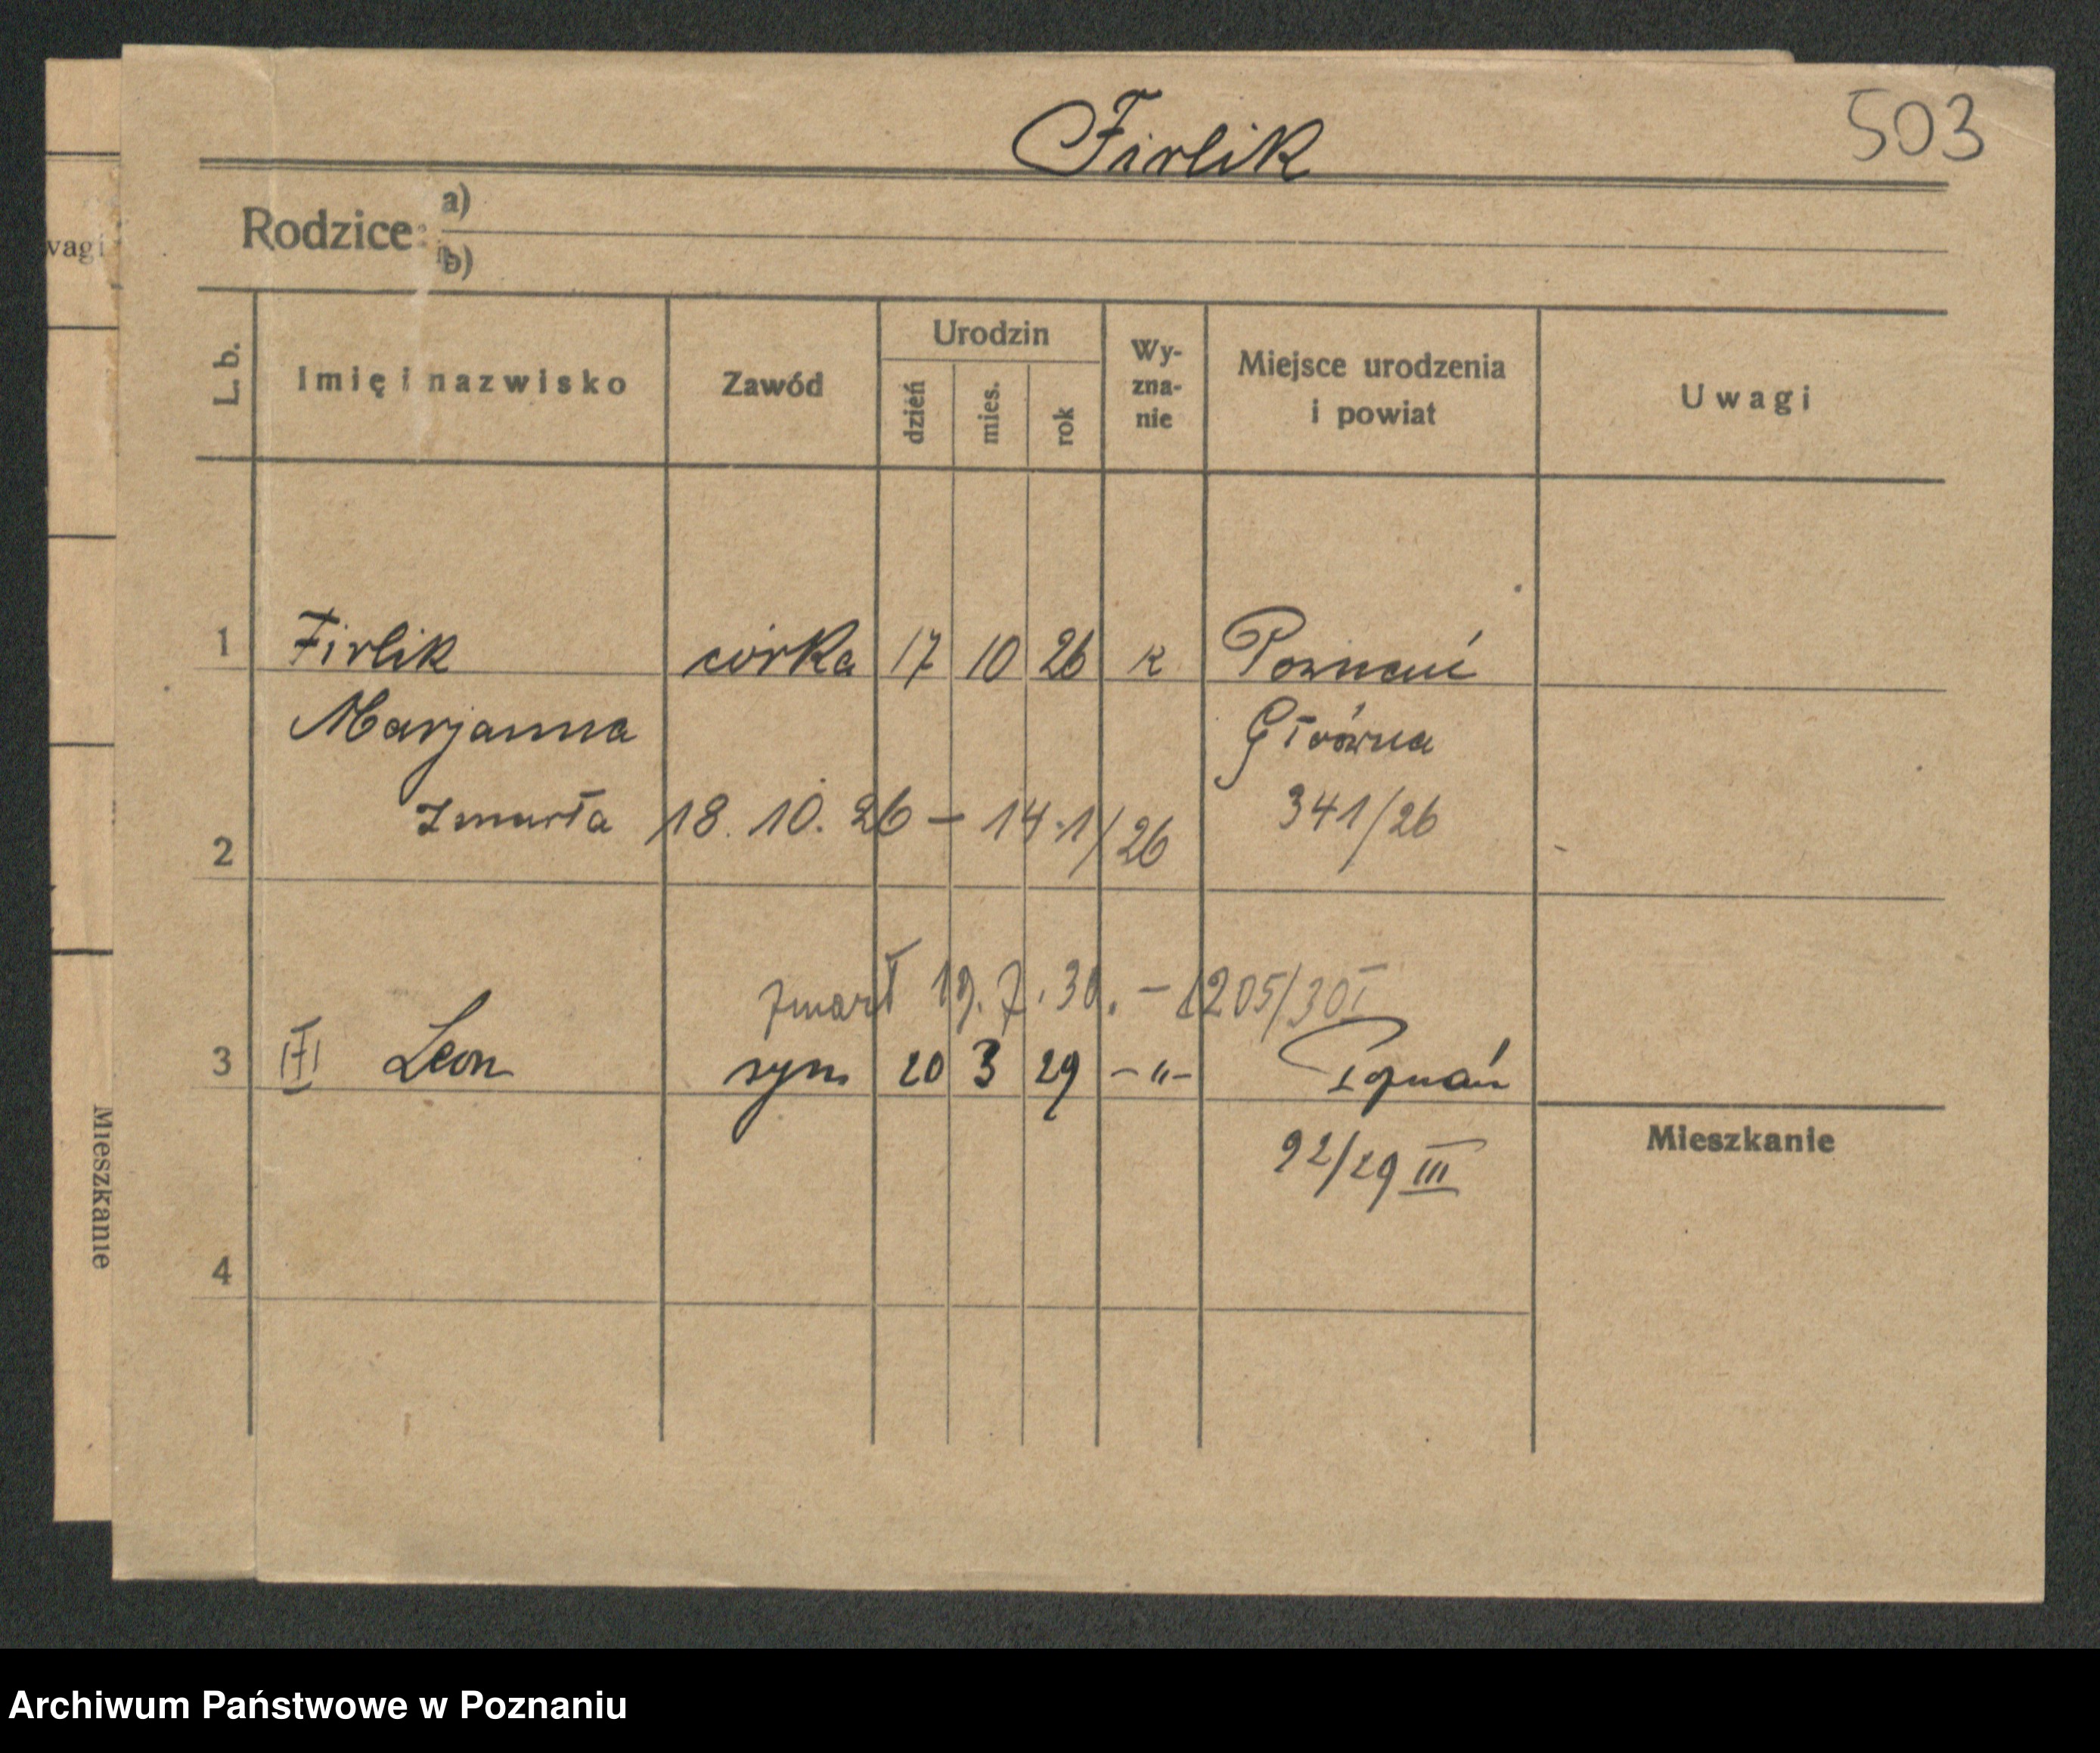 503
Firlik
Rodzice: a)
b)
L. b. Imię i nazwisko Zawód Urodzin dzień mies. rok Wy-zna-nie Miejsce urodzenia i powiat Uwagi
1 Firlik córka 17 10 26 k Poznań
Marjanna Główna
2 Zmarła 18. 10. 26 – 141/26 341/26
zmarł 19. 7. 30. – 1205/30 I
3 Leon syn 20 3 29 –"– Poznań
Mieszkanie
92/29 III
4
wagi
Mieszkanie
Archiwum Państwowe w Poznaniu